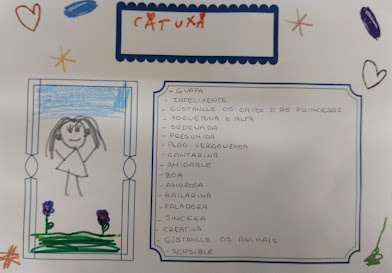 CATUXA
- GUAPA
- INTELIXENTE
- GÚSTANLLE OS GATOS E AS PRINCESAS
- XOGUETONA E ALTA
- ORDENADA
- PRESUMIDA
- ALGO VERGONZOSA
- CANTARINA
- AMIGABLE
- BOA
- AMOROSA
- BAILARINA
- FALADORA
- SINCERA
- CREATIVA
- GÚSTANLLE OS ANIMAIS
- SENSIBLE